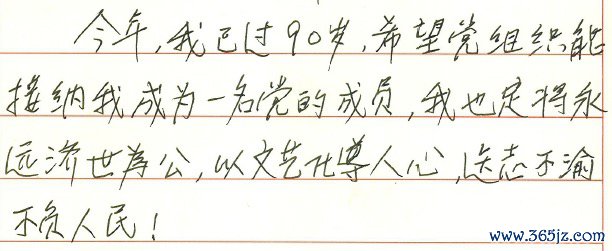 今年,我已过90岁,希望党组织能
接纳我成为一名党的成员,我也定将永
远济世为公,以文艺化导人心,矢志不渝
不负人民!
www.365jz.com